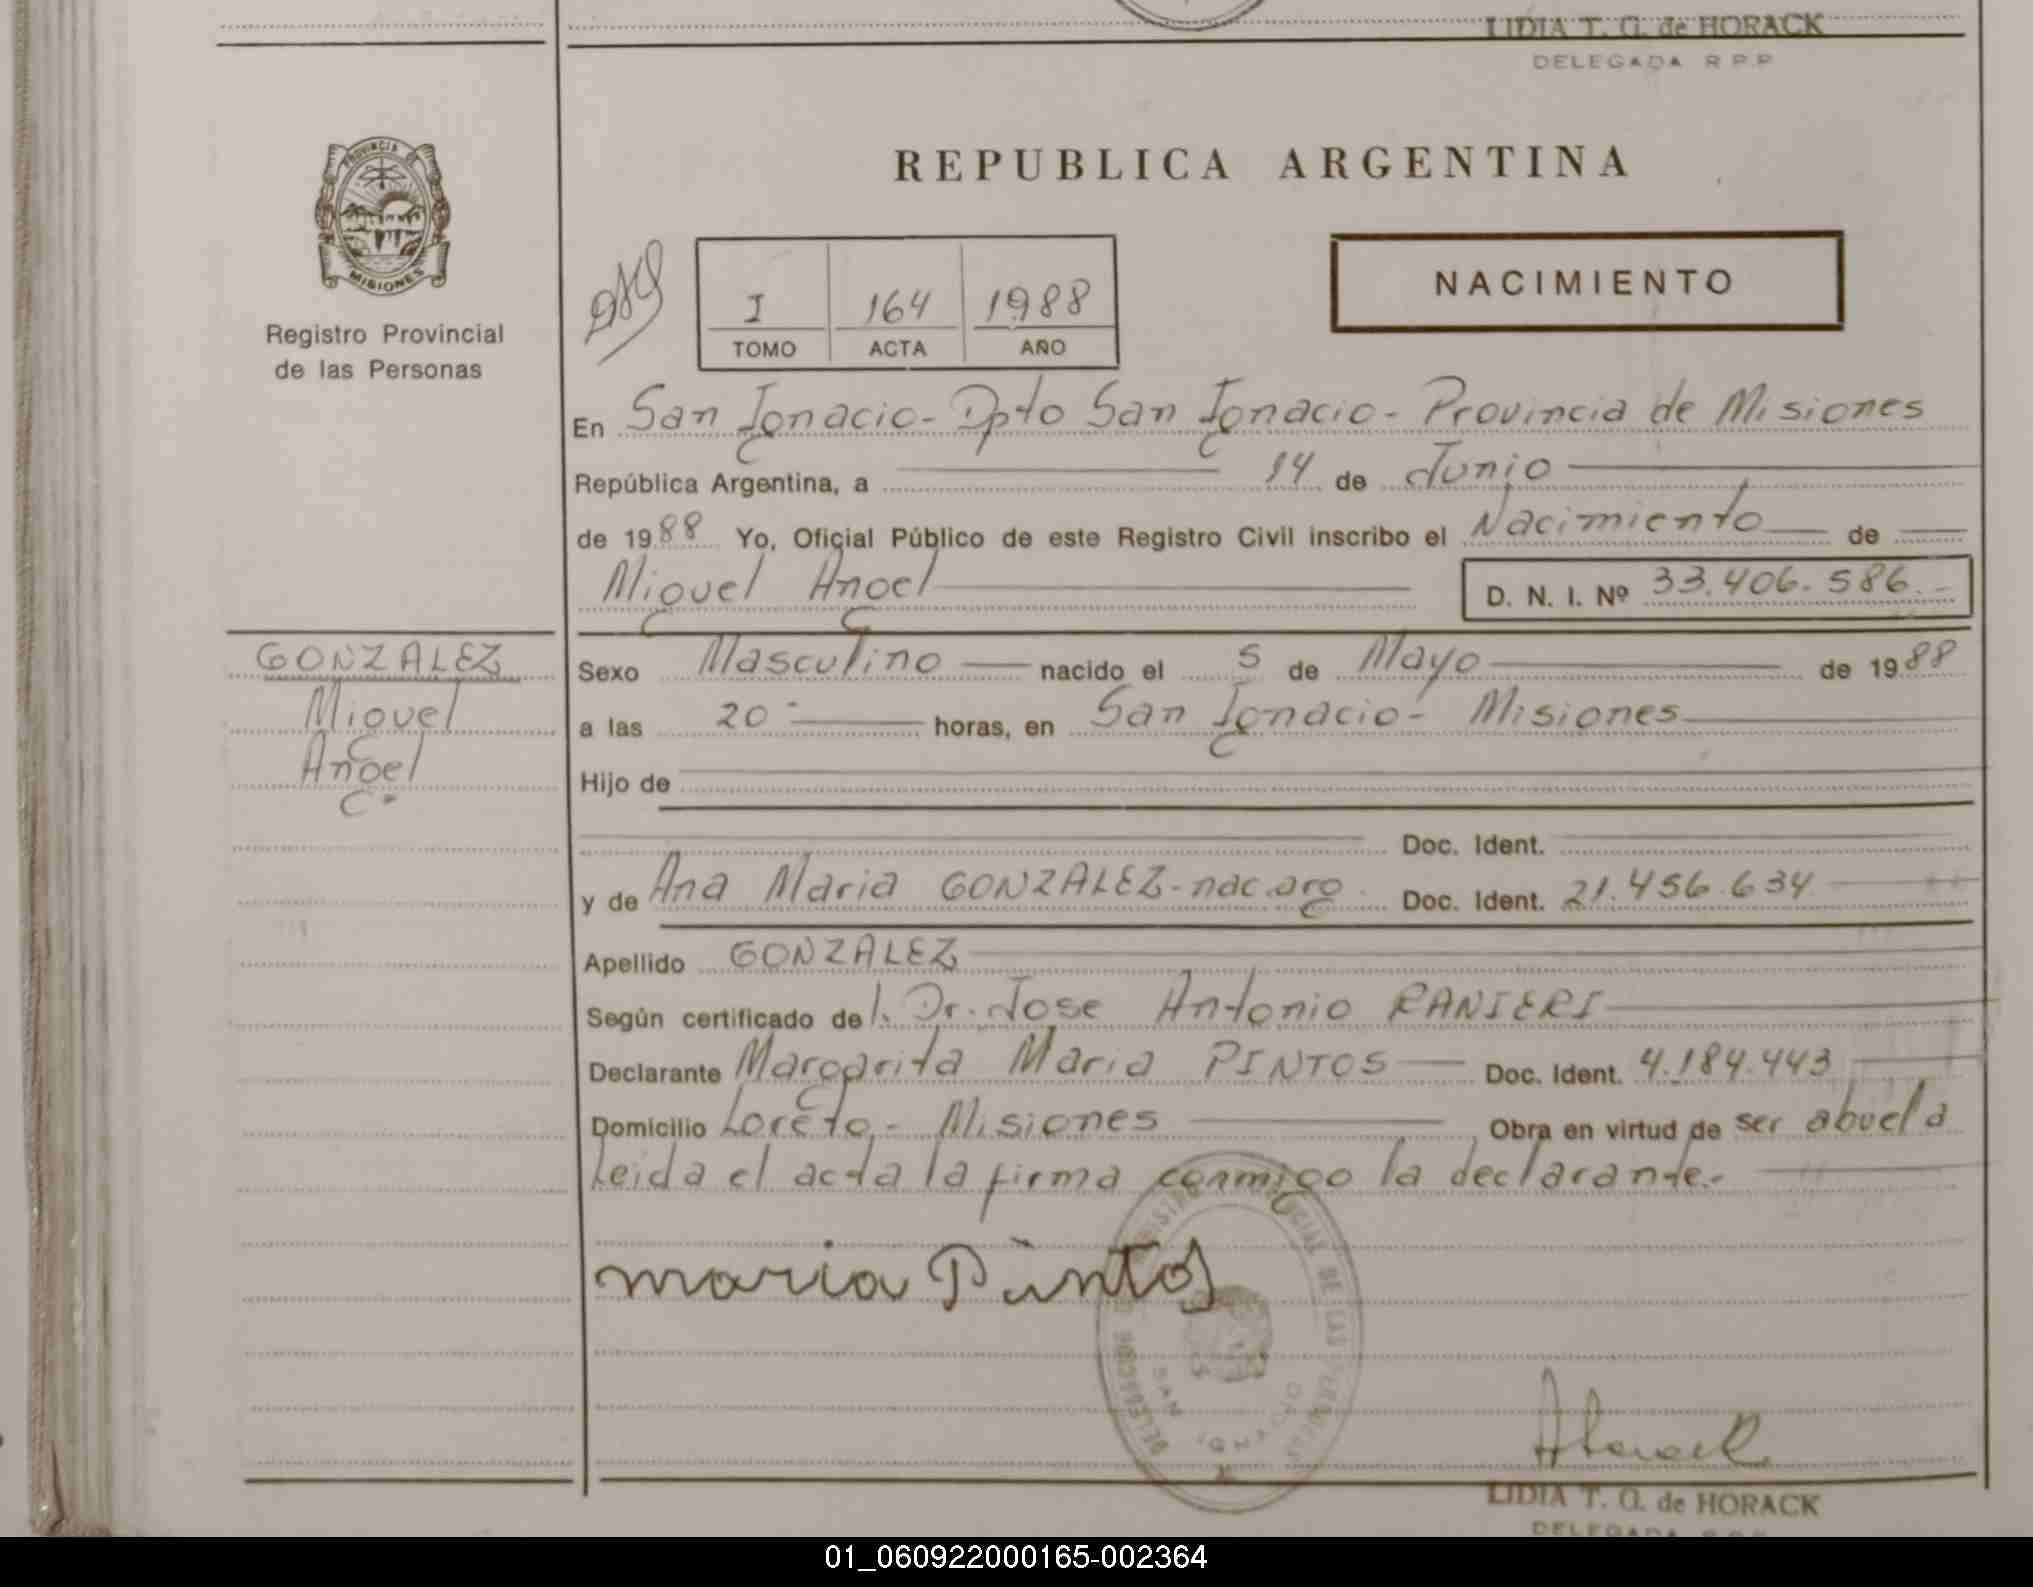 LIDIA T. G. de HORACK
DELEGADA R.P.P
PROVINCIA DE
MISIONES
Registro Provincial
de las Personas
REPUBLICA ARGENTINA
NACIMIENTO
I 164 1988
TOMO ACTA AÑO
En San Ignacio - Dpto San Ignacio - Provincia de Misiones
República Argentina, a 14 de Junio
de 1988 Yo, Oficial Público de este Registro Civil inscribo el Nacimiento de
Miguel Angel D. N. I. Nº 33.406.586.-
GONZALEZ
Miguel
Angel
Sexo Masculino nacido el 5 de Mayo de 1988
a las 20 horas, en San Ignacio - Misiones
Hijo de
Doc. Ident.
y de Ana Maria GONZALEZ - nac. arg. Doc. Ident. 21.456.634
Apellido GONZALEZ
Según certificado del. Dr. Jose Antonio RANIERI
Declarante Margarita Maria PINTOS Doc. Ident. 4.184.443
Domicilio Loreto - Misiones Obra en virtud de ser abuela
Leida el acta la firma conmigo la declarante.-
maria Pintos
LIDIA T. G. de HORACK
DELEGADA
01_060922000165-002364